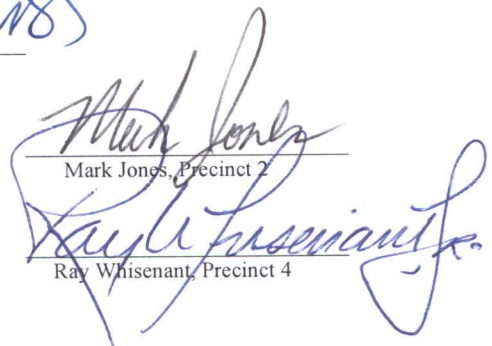 Mark Jones
Mark Jones, Precinct 2
Ray Whisenant Jr.
Ray Whisenant, Precinct 4